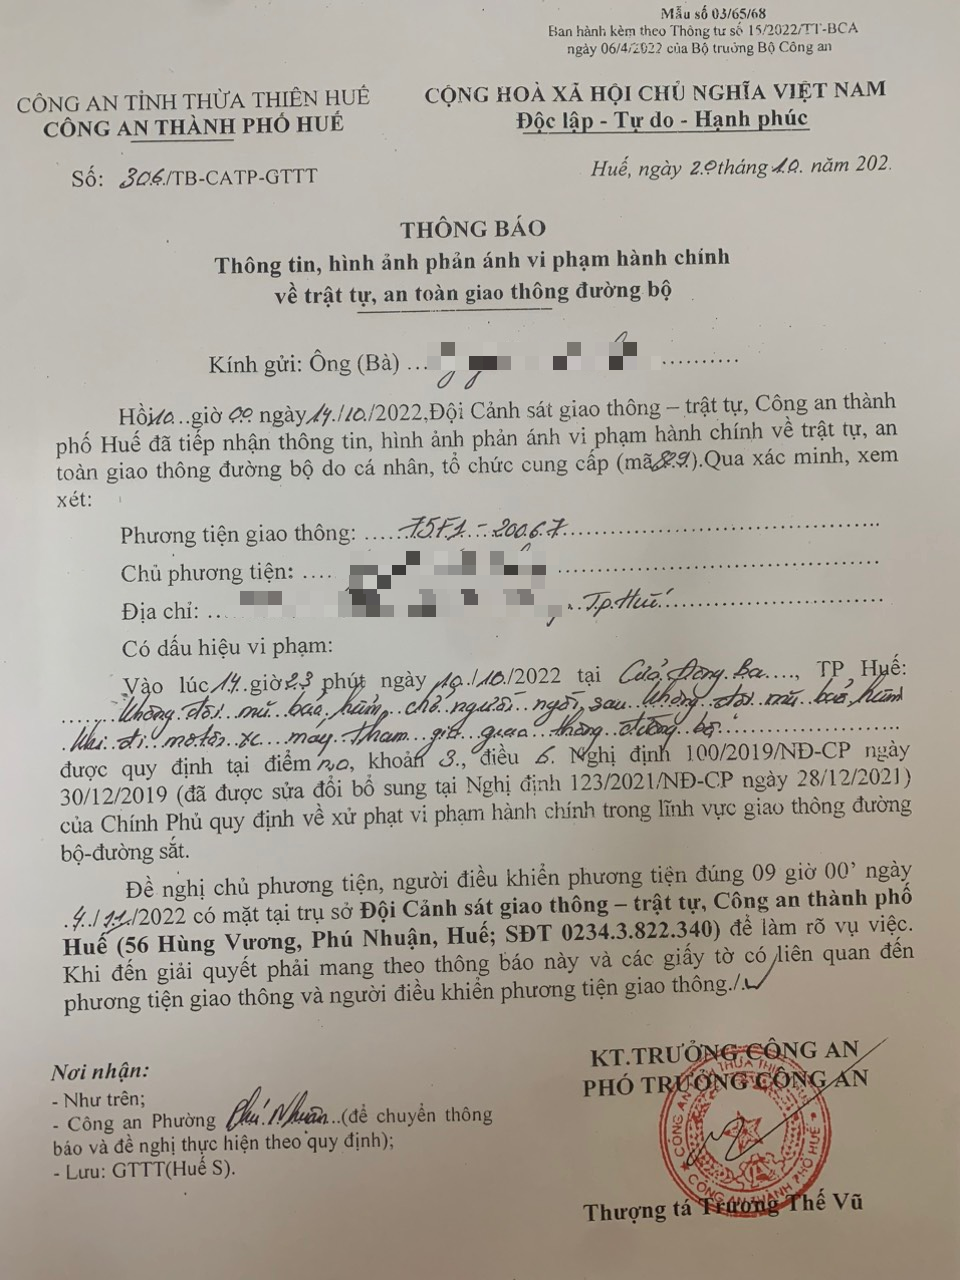 Mẫu số 03/65/68
Ban hành kèm theo Thông tư số 15/2022/TT-BCA
ngày 06/4/2022 của Bộ trưởng Bộ Công an
CÔNG AN TỈNH THỪA THIÊN HUẾ
CÔNG AN THÀNH PHỐ HUẾ
CỘNG HOÀ XÃ HỘI CHỦ NGHĨA VIỆT NAM
Độc lập - Tự do - Hạnh phúc
Số: 306/TB-CATP-GTTT
Huế, ngày 20 tháng 10 năm 202.
THÔNG BÁO
Thông tin, hình ảnh phản ánh vi phạm hành chính
về trật tự, an toàn giao thông đường bộ
Kính gửi: Ông (Bà) ... ..........
Hồi 10..giờ 00 ngày 14./10./2022,Đội Cảnh sát giao thông – trật tự, Công an thành
phố Huế đã tiếp nhận thông tin, hình ảnh phản ánh vi phạm hành chính về trật tự, an
toàn giao thông đường bộ do cá nhân, tổ chức cung cấp (mã 829).Qua xác minh, xem
xét:
Phương tiện giao thông: .....75F1 - 200.67..............................
Chủ phương tiện: .... ..............................
Địa chỉ: ... Tp. Huế..............................
Có dấu hiệu vi phạm:
Vào lúc 14 giờ 23 phút ngày 10./10./2022 tại Cửa Đông Ba...., TP Huế:
......Không đội mũ bảo hiểm, chở người ngồi sau không đội mũ bảo hiểm
khi đi mô tô xe máy tham gia giao thông đường bộ...............
được quy định tại điểm n,o, khoản 3., điều 6. Nghị định 100/2019/NĐ-CP ngày
30/12/2019 (đã được sửa đổi bổ sung tại Nghị định 123/2021/NĐ-CP ngày 28/12/2021)
của Chính Phủ quy định về xử phạt vi phạm hành chính trong lĩnh vực giao thông đường
bộ-đường sắt.
Đề nghị chủ phương tiện, người điều khiển phương tiện đúng 09 giờ 00’ ngày
.4./11./2022 có mặt tại trụ sở Đội Cảnh sát giao thông – trật tự, Công an thành phố
Huế (56 Hùng Vương, Phú Nhuận, Huế; SĐT 0234.3.822.340) để làm rõ vụ việc.
Khi đến giải quyết phải mang theo thông báo này và các giấy tờ có liên quan đến
phương tiện giao thông và người điều khiển phương tiện giao thông./.
Nơi nhận:
- Như trên;
- Công an Phường Phú Nhuận...(để chuyển thông
báo và đề nghị thực hiện theo quy định);
- Lưu: GTTT(Huế S).
KT.TRƯỞNG CÔNG AN
PHÓ TRƯỞNG CÔNG AN
CÔNG AN THÀNH PHỐ HUẾ
Thượng tá Trương Thế Vũ